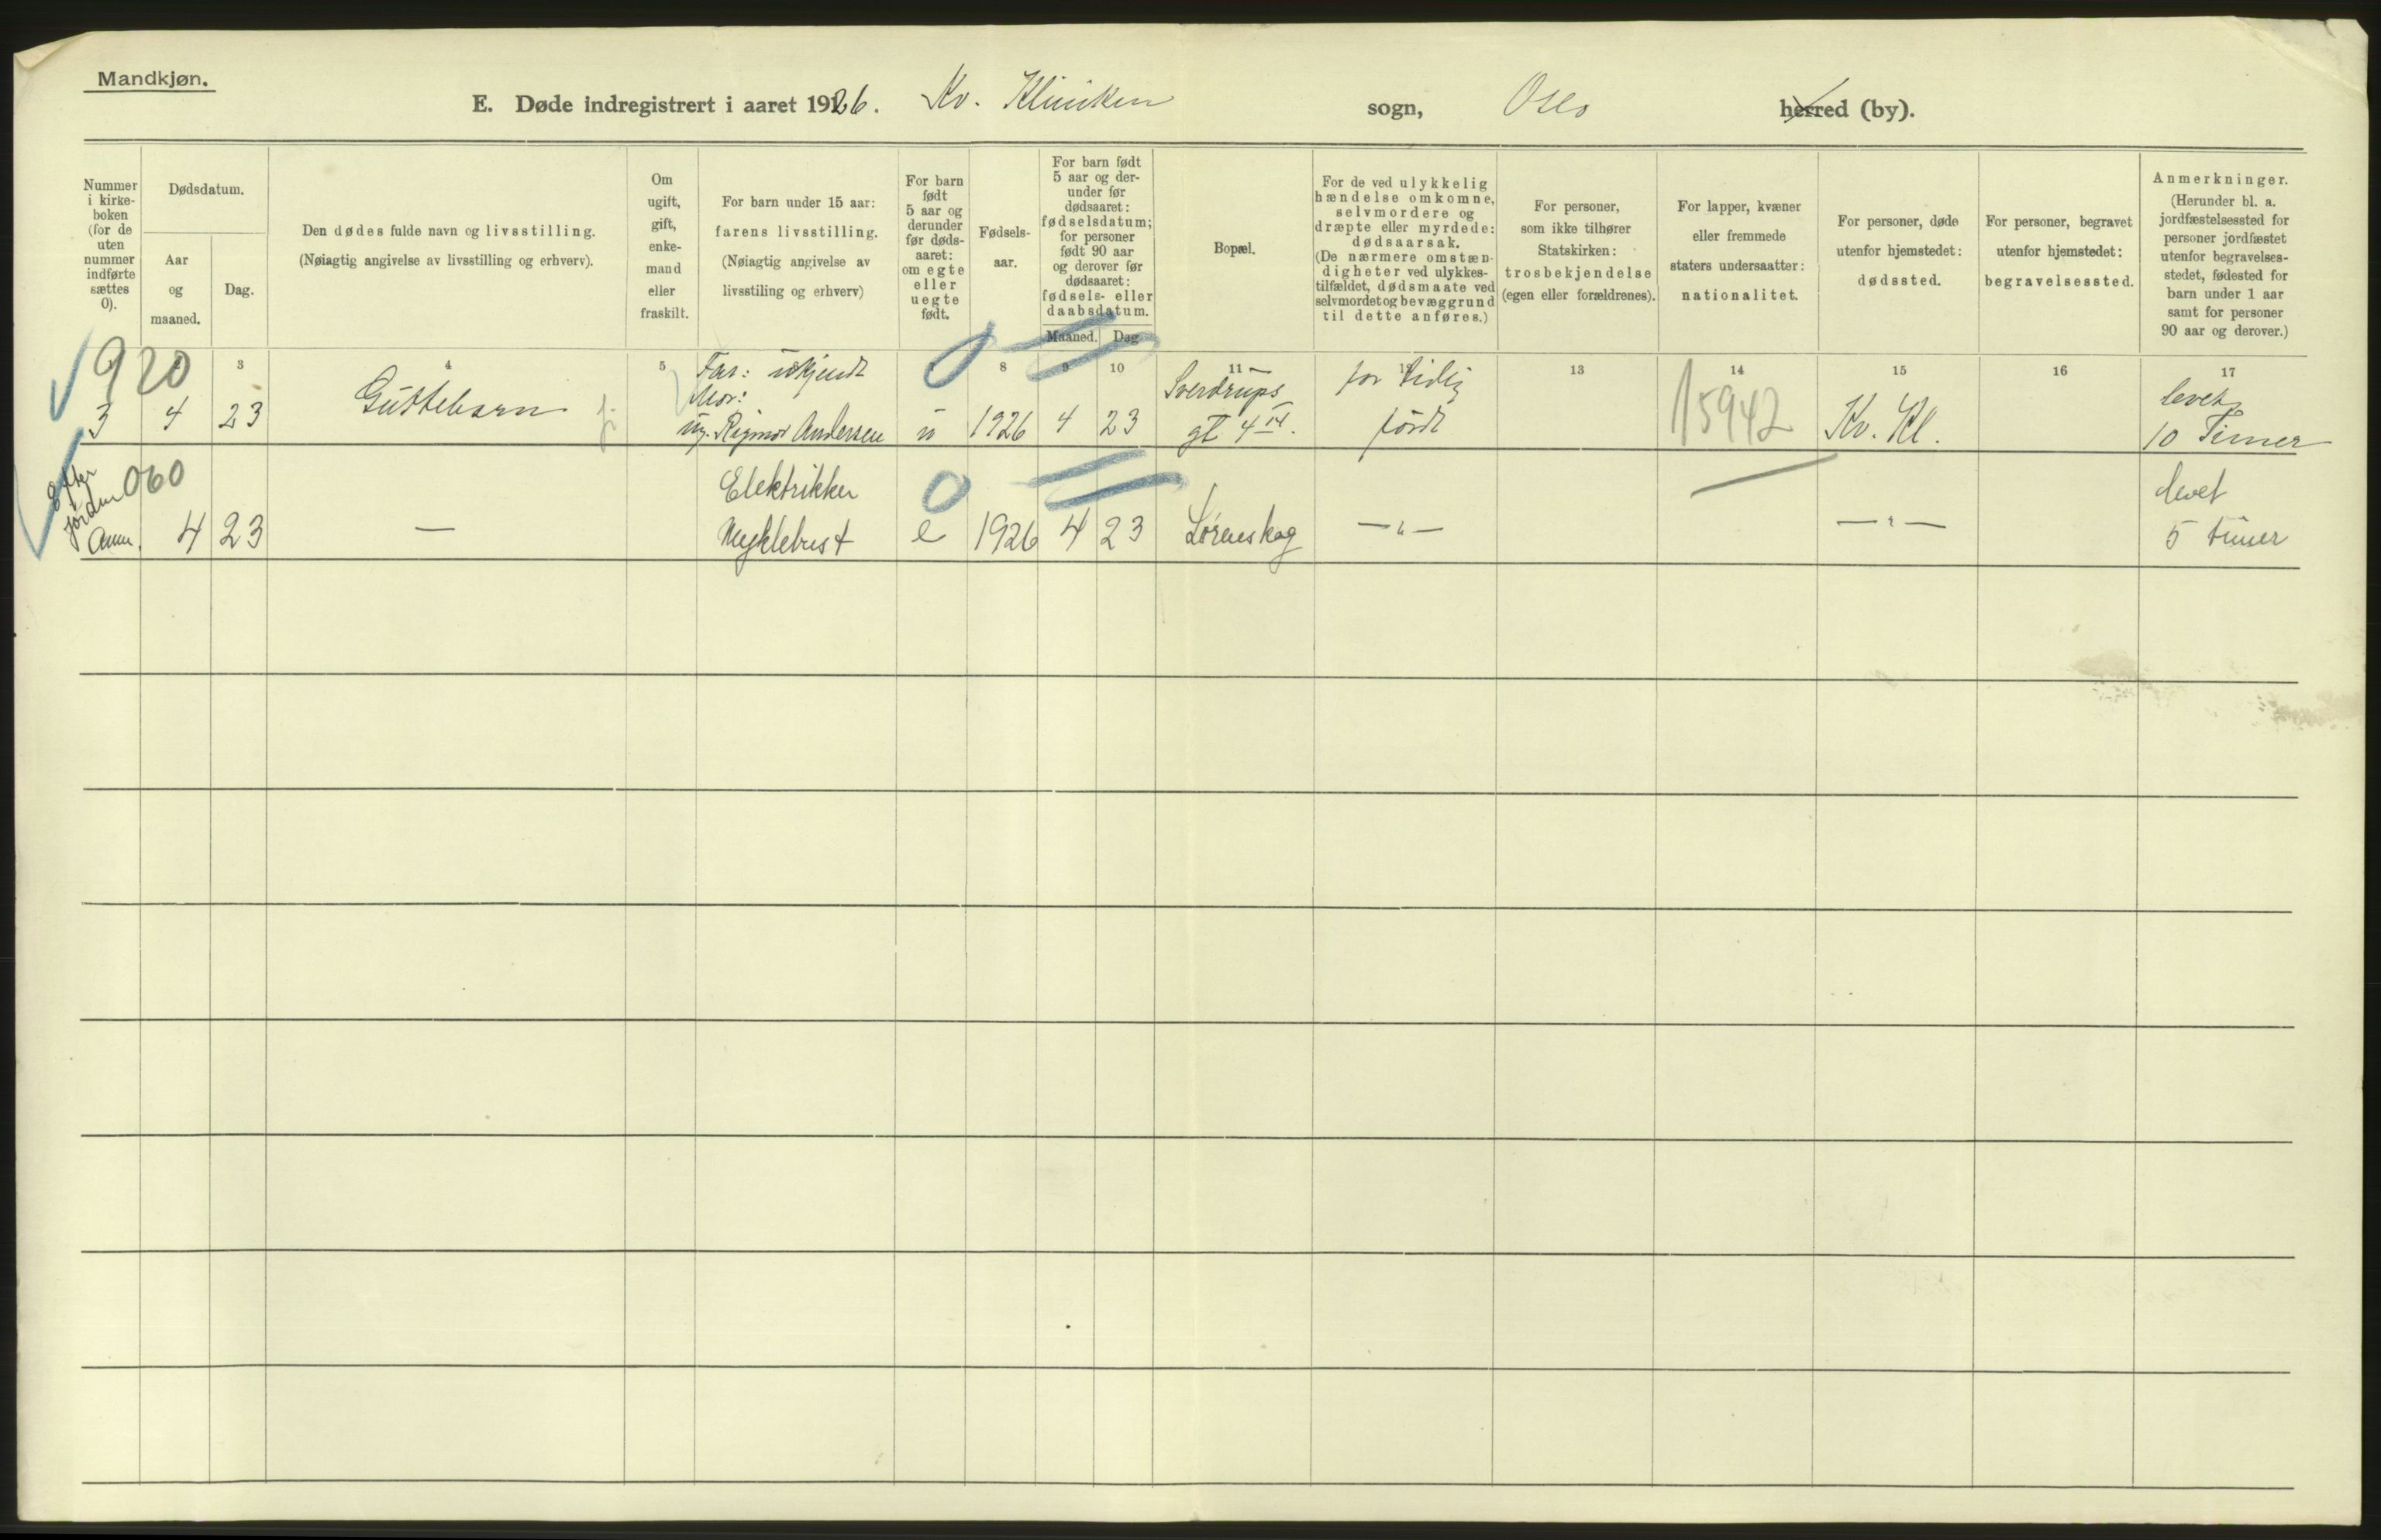 Mandkjøn.
E. Døde indregistrert i aaret 1926. Kv. Kliniken sogn, Oslo herred (by).
Nummer
i kirke-
boken
(for de
uten
nummer
indførte
sættes
0).
Dødsdatum.
Aar
og
maaned.
Dag.
Den dødes fulde navn og livsstilling.
(Nøiagtig angivelse av livsstilling og erhverv).
Om
ugift,
gift,
enke-
mand
eller
fraskilt.
For barn under 15 aar:
farens livsstilling.
(Nøiagtig angivelse av
livsstiling og erhverv)
For barn
født
5 aar og
derunder
før døds-
aaret:
om egte
eller
uegte
født.
Fødsels-
aar.
For barn født
5 aar og der-
under før
dødsaaret:
fødselsdatum;
for personer
født 90 aar
og derover før
dødsaaret:
fødsels- eller
daabsdatum.
Maaned. Dag
Bopæl.
For de ved ulykkelig
hændelse omkomne,
selvmordere og
dræpte eller myrdede:
dødsaarsak.
(De nærmere omstæn-
digheter ved ulykkes-
tilfældet, dødsmaate ved
selvmordet og bevæggrund
til dette anføres.)
For personer,
som ikke tilhører
Statskirken:
trosbekjendelse
(egen eller forældrenes).
For lapper, kvæner
eller fremmede
staters undersaatter:
nationalitet.
For personer, døde
utenfor hjemstedet:
dødssted.
For personer, begravet
utenfor hjemstedet:
begravelsessted.
Anmerkninger.
(Herunder bl. a.
jordfæstelsessted for
personer jordfæstet
utenfor begravelses-
stedet, fødested for
barn under 1 aar
samt for personer
90 aar og derover.)
3 4 5 8 9 10 11 13 14 15 16 17
920
Far: ukjendt
Mor:
Sverdrups for tidig levet
3 4 23 Guttebarn ug. Rigmor Andersen u 1926 4 23 gt 4 født 15942 Kv. Kl. 10 Timer
Efter
jordm
Anm.
060 Elektrikker 0 levet
4 23 — Myklebust e 1926 4 23 Lørenskog — " — — " — 5 timer